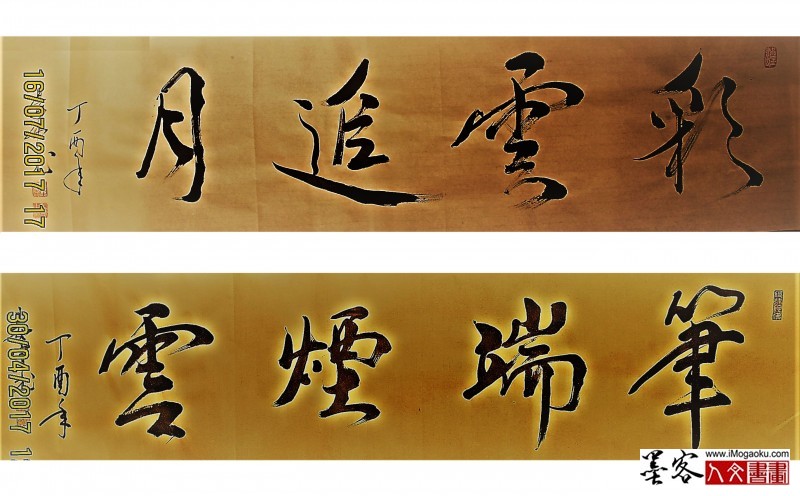 彩雲追月
丁酉年
16/07/2017 17
筆端煙雲
丁酉年
30/04/2017 1
墨客
www.iMogaoku.com
人文書畫